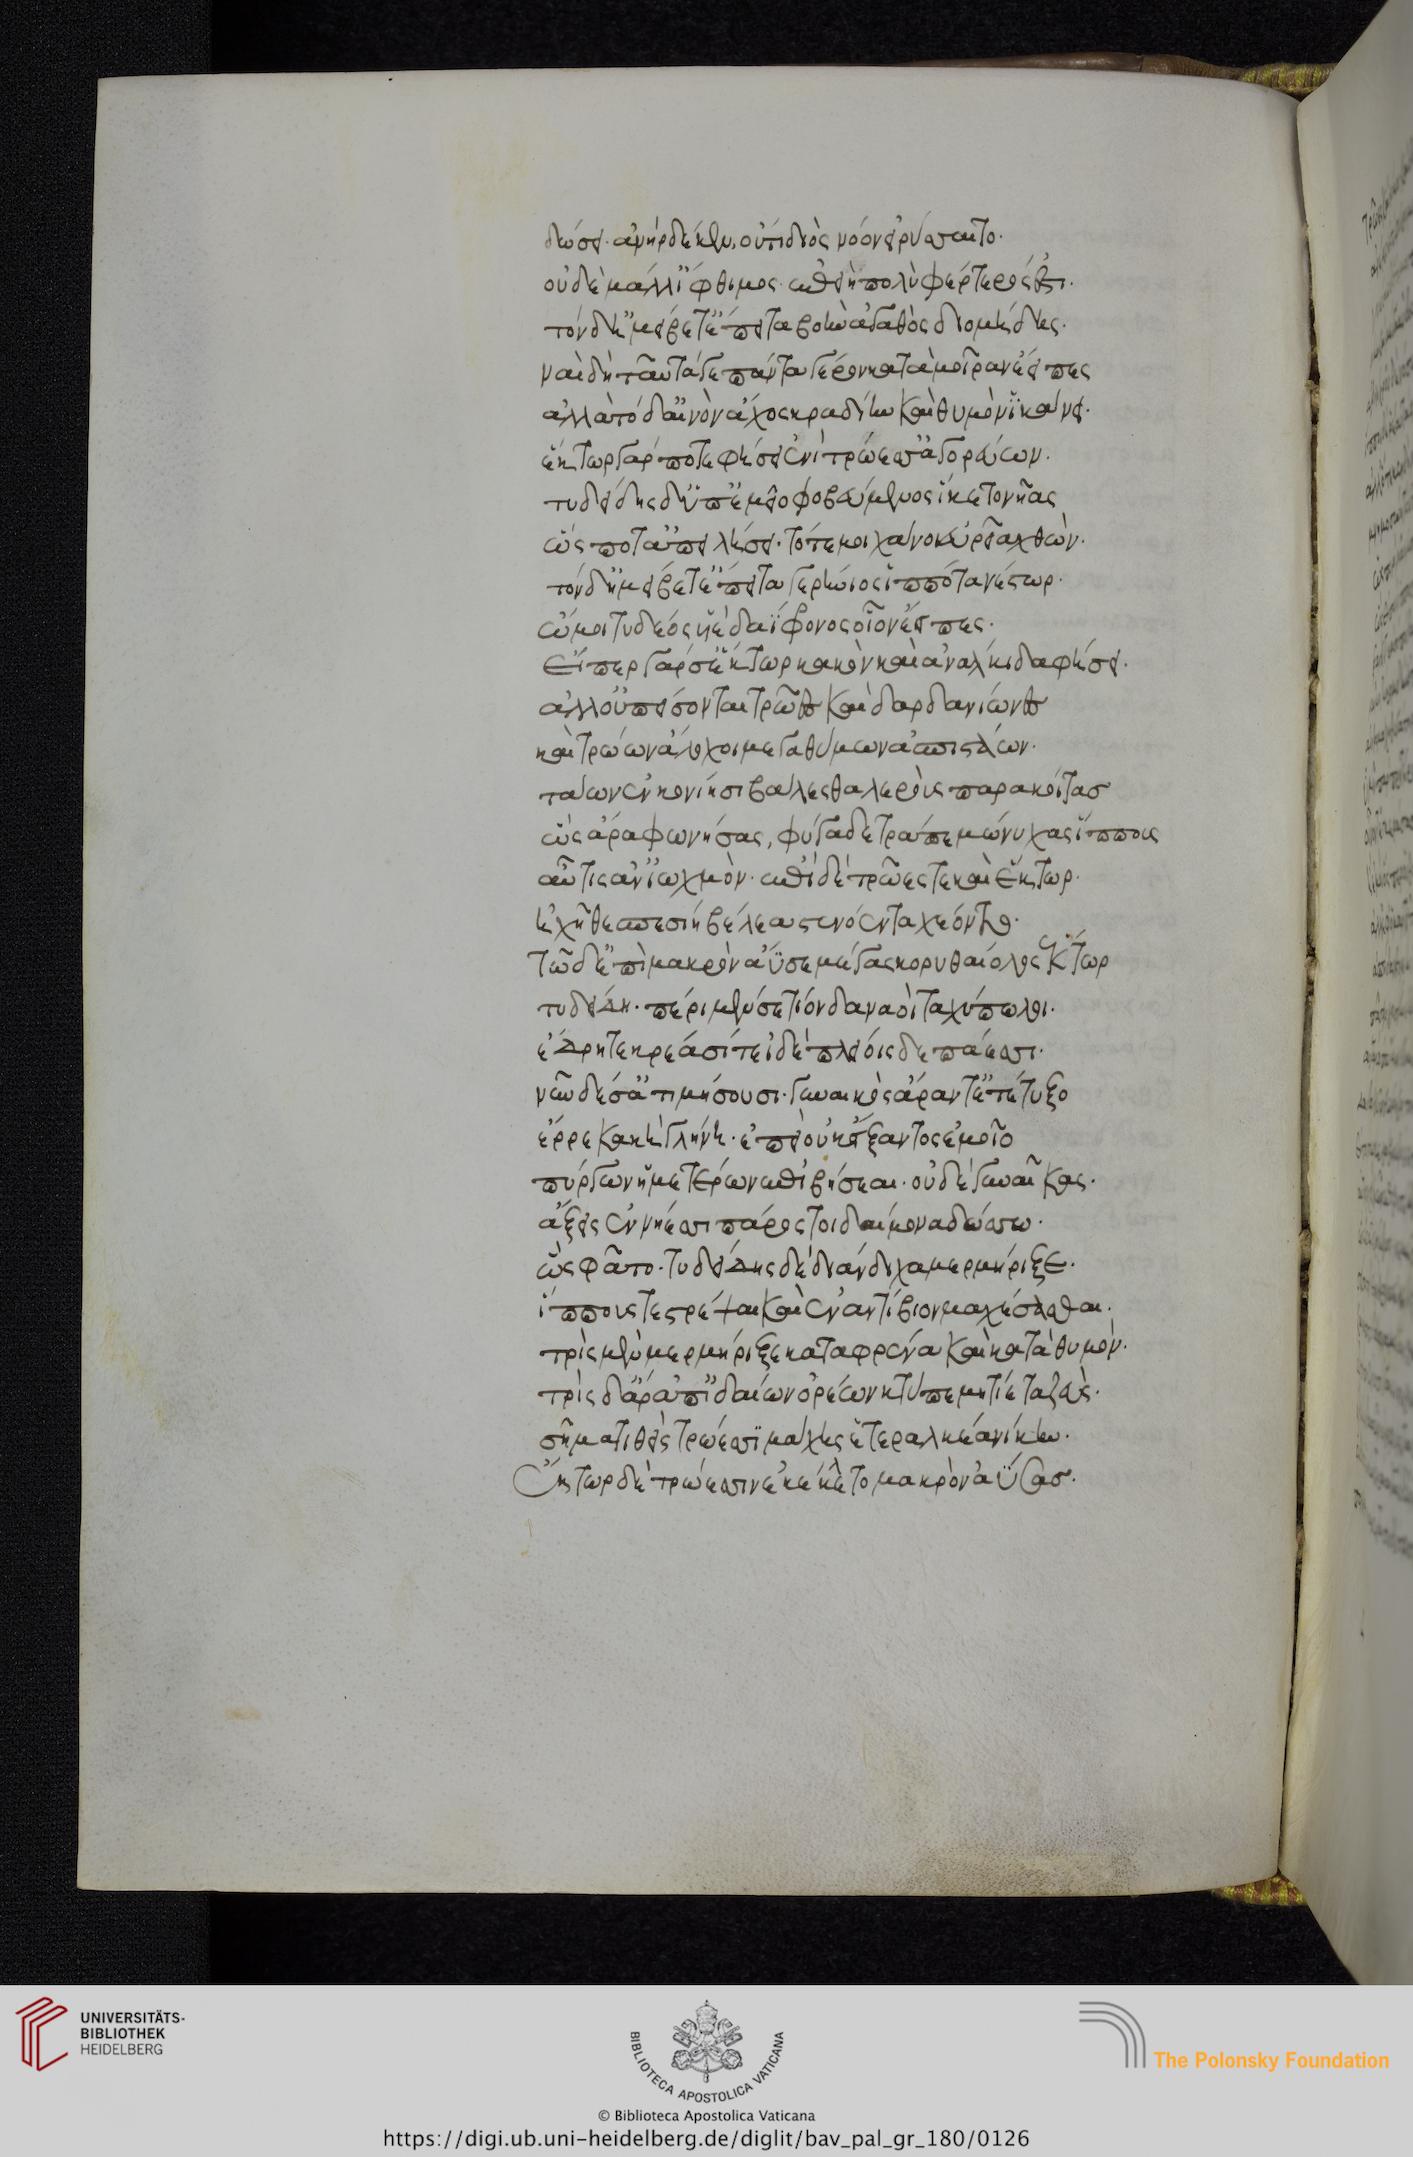 δώσει· ἀνὴρ δέ κεν, οὔτι διὸς νόον εἰρύσαιτο·
οὐδὲ μάλλ' ἴφθιμος· ἐπειὴ πολὺ φέρτερός ἐστι·
τόνδ' ἠμείβετ' ἔπειτα βοὴν ἀγαθὸς διομήδης·
ναὶ δὴ ταῦτά γε πάντα γέρον κατὰ μοῖραν ἔειπες
ἀλλὰ τόδ' αἰνὸν ἄχος κραδίην καὶ θυμὸν ἱκάνει·
ἕκτωρ γάρ ποτε φήσει ἐνὶ τρώεσσ' ἀγορεύων·
τυδείδης δ' ὑπ' ἐμεῖο φοβεύμενος ἵκετο νῆας
ὥς ποτ' ἀπειλήσει· τότε μοι χάνοι εὐρεῖα χθών·
τόνδ' ἠμείβετ' ἔπειτα γερήνιος ἱππότα νέστωρ·
ὤμοι τυδέος υἱὲ δαΐφρονος οἷον ἔειπες·
εἴπερ γάρ σ' ἕκτωρ κακὸν καὶ ἀνάλκιδα φήσει·
ἀλλ' οὐ πείσονται τρῶες καὶ δαρδανίωνες
καὶ τρώων ἄλοχοι μεγαθύμων ἀσπιστάων·
τάων ἐν κονίησι βάλες θαλεροὺς παρακοίτας
ὣς ἄρα φωνήσας, φύγαδε τράπε μώνυχας ἵππους
αὖτις ἀν' ἰωχμὸν· ἐπὶ δὲ τρῶές τε καὶ ἕκτωρ·
ἠχῆ θεσπεσίη βέλεα στονόεντα χέοντο·
τῶδ' ἐπὶ μακρὸν ἄϋσε μέγας κορυθαίολος ἕκτωρ
τυδείδη· πέρι μέν σε τίον δαναοὶ ταχύπωλοι·
ἕδρη τε κρέασί τε ἰδὲ πλείοις δεπάεσσι·
νῦν δέ σ' ἀτιμήσουσι· γυναικὸς ἄρ' ἀντ' ἐτέτυξο
ἔρρε κακὴ γλήνη· ἐπεὶ οὐκ εἴξαντος ἐμοῖο
πύργων ἡμετέρων ἐπιβήσεαι· οὐδὲ γυναῖκας·
ἄξεις ἐν νήεσσι πάρος τοι δαίμονα δώσω·
ὣς φάτο· τυδείδης δὲ διάνδιχα μερμήριξε·
ἵππους τε στρέψαι καὶ ἐναντίβιον μαχέσασθαι·
τρὶς μὲν μερμήριξε κατὰ φρένα καὶ κατὰ θυμόν·
τρὶς δ' ἄρ' ἀπ' ἰδαίων ὀρέων κτύπε μητίετα ζεὺς·
σῆμα τιθεὶς τρώεσσι μάχης ἑτεραλκέα νίκην·
Ἕκτωρ δὲ τρώεσσιν ἐκέκλετο μακρὸν ἀΰσας·
UNIVERSITÄTS-
BIBLIOTHEK
HEIDELBERG
BIBLIOTECA APOSTOLICA VATICANA
The Polonsky Foundation
© Biblioteca Apostolica Vaticana
https://digi.ub.uni-heidelberg.de/diglit/bav_pal_gr_180/0126